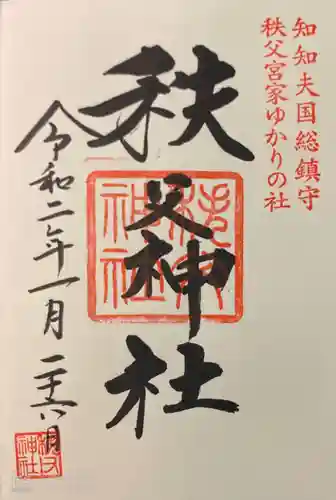 知知夫国総鎮守
秩父宮家ゆかりの社
秩父神社
令和二年一月二十六日
秩父神社
秩父神社